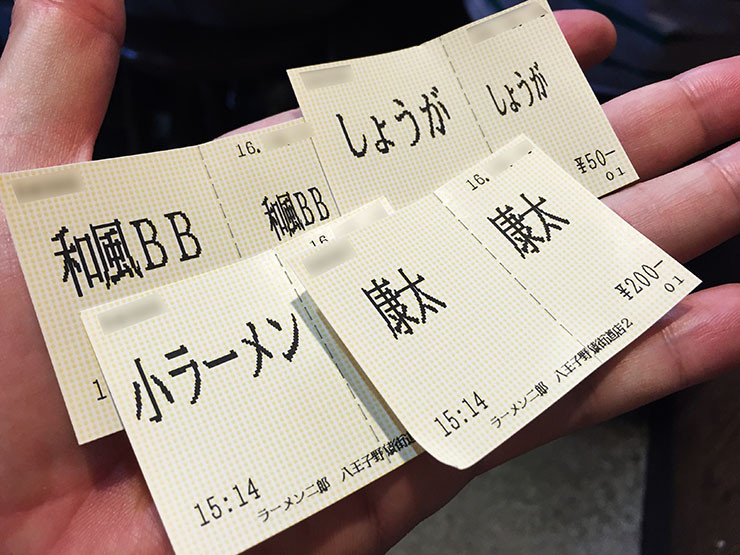 しょうが
しょうが
¥50-
01
16.
和風BB
和風BB
1
16.
康太
康太
¥200-
01
15:14
ラーメン二郎 八王子野猿街道店2
16
小ラーメン
15:14
ラーメン二郎 八王子野猿街道